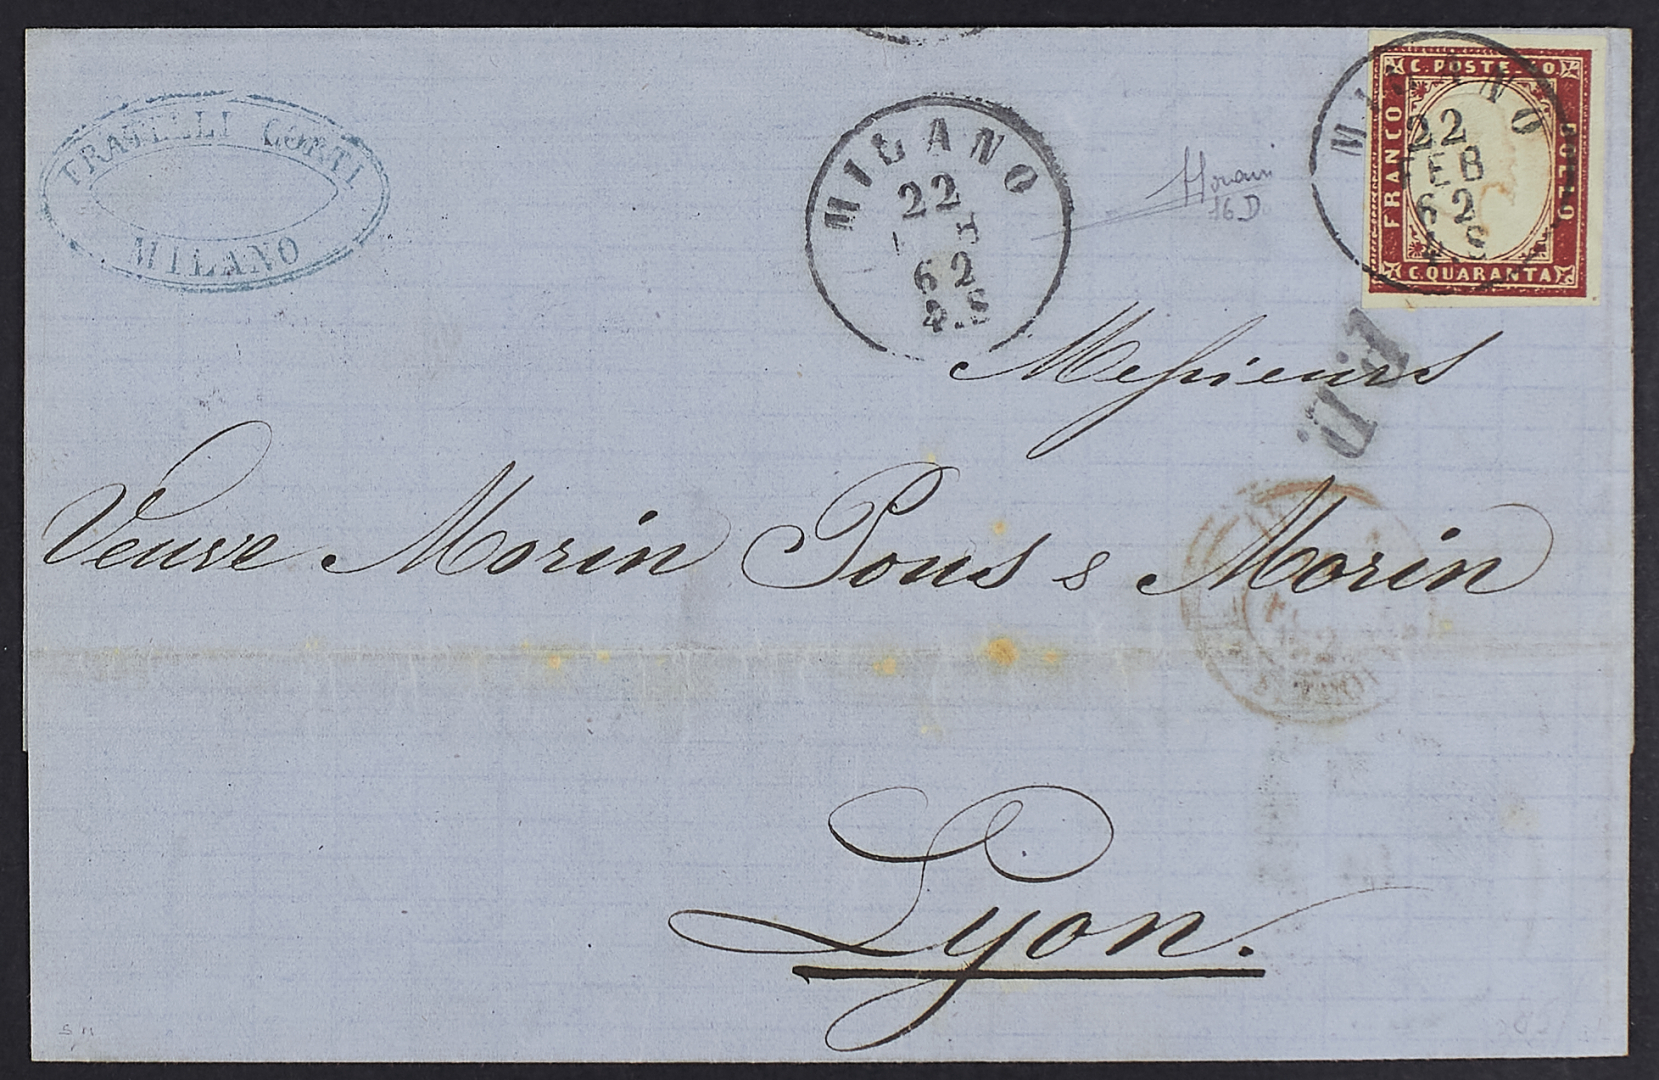 FRATELLI CORTI
MILANO
MILANO
22
62
4.S
16D
C. POSTE
FRANCO
BOLLO
C. QUARANTA
MILANO
22
FEB
62
4.S
P.D.
Messieurs
Veuve Morin Pons & Morin
Lyon.